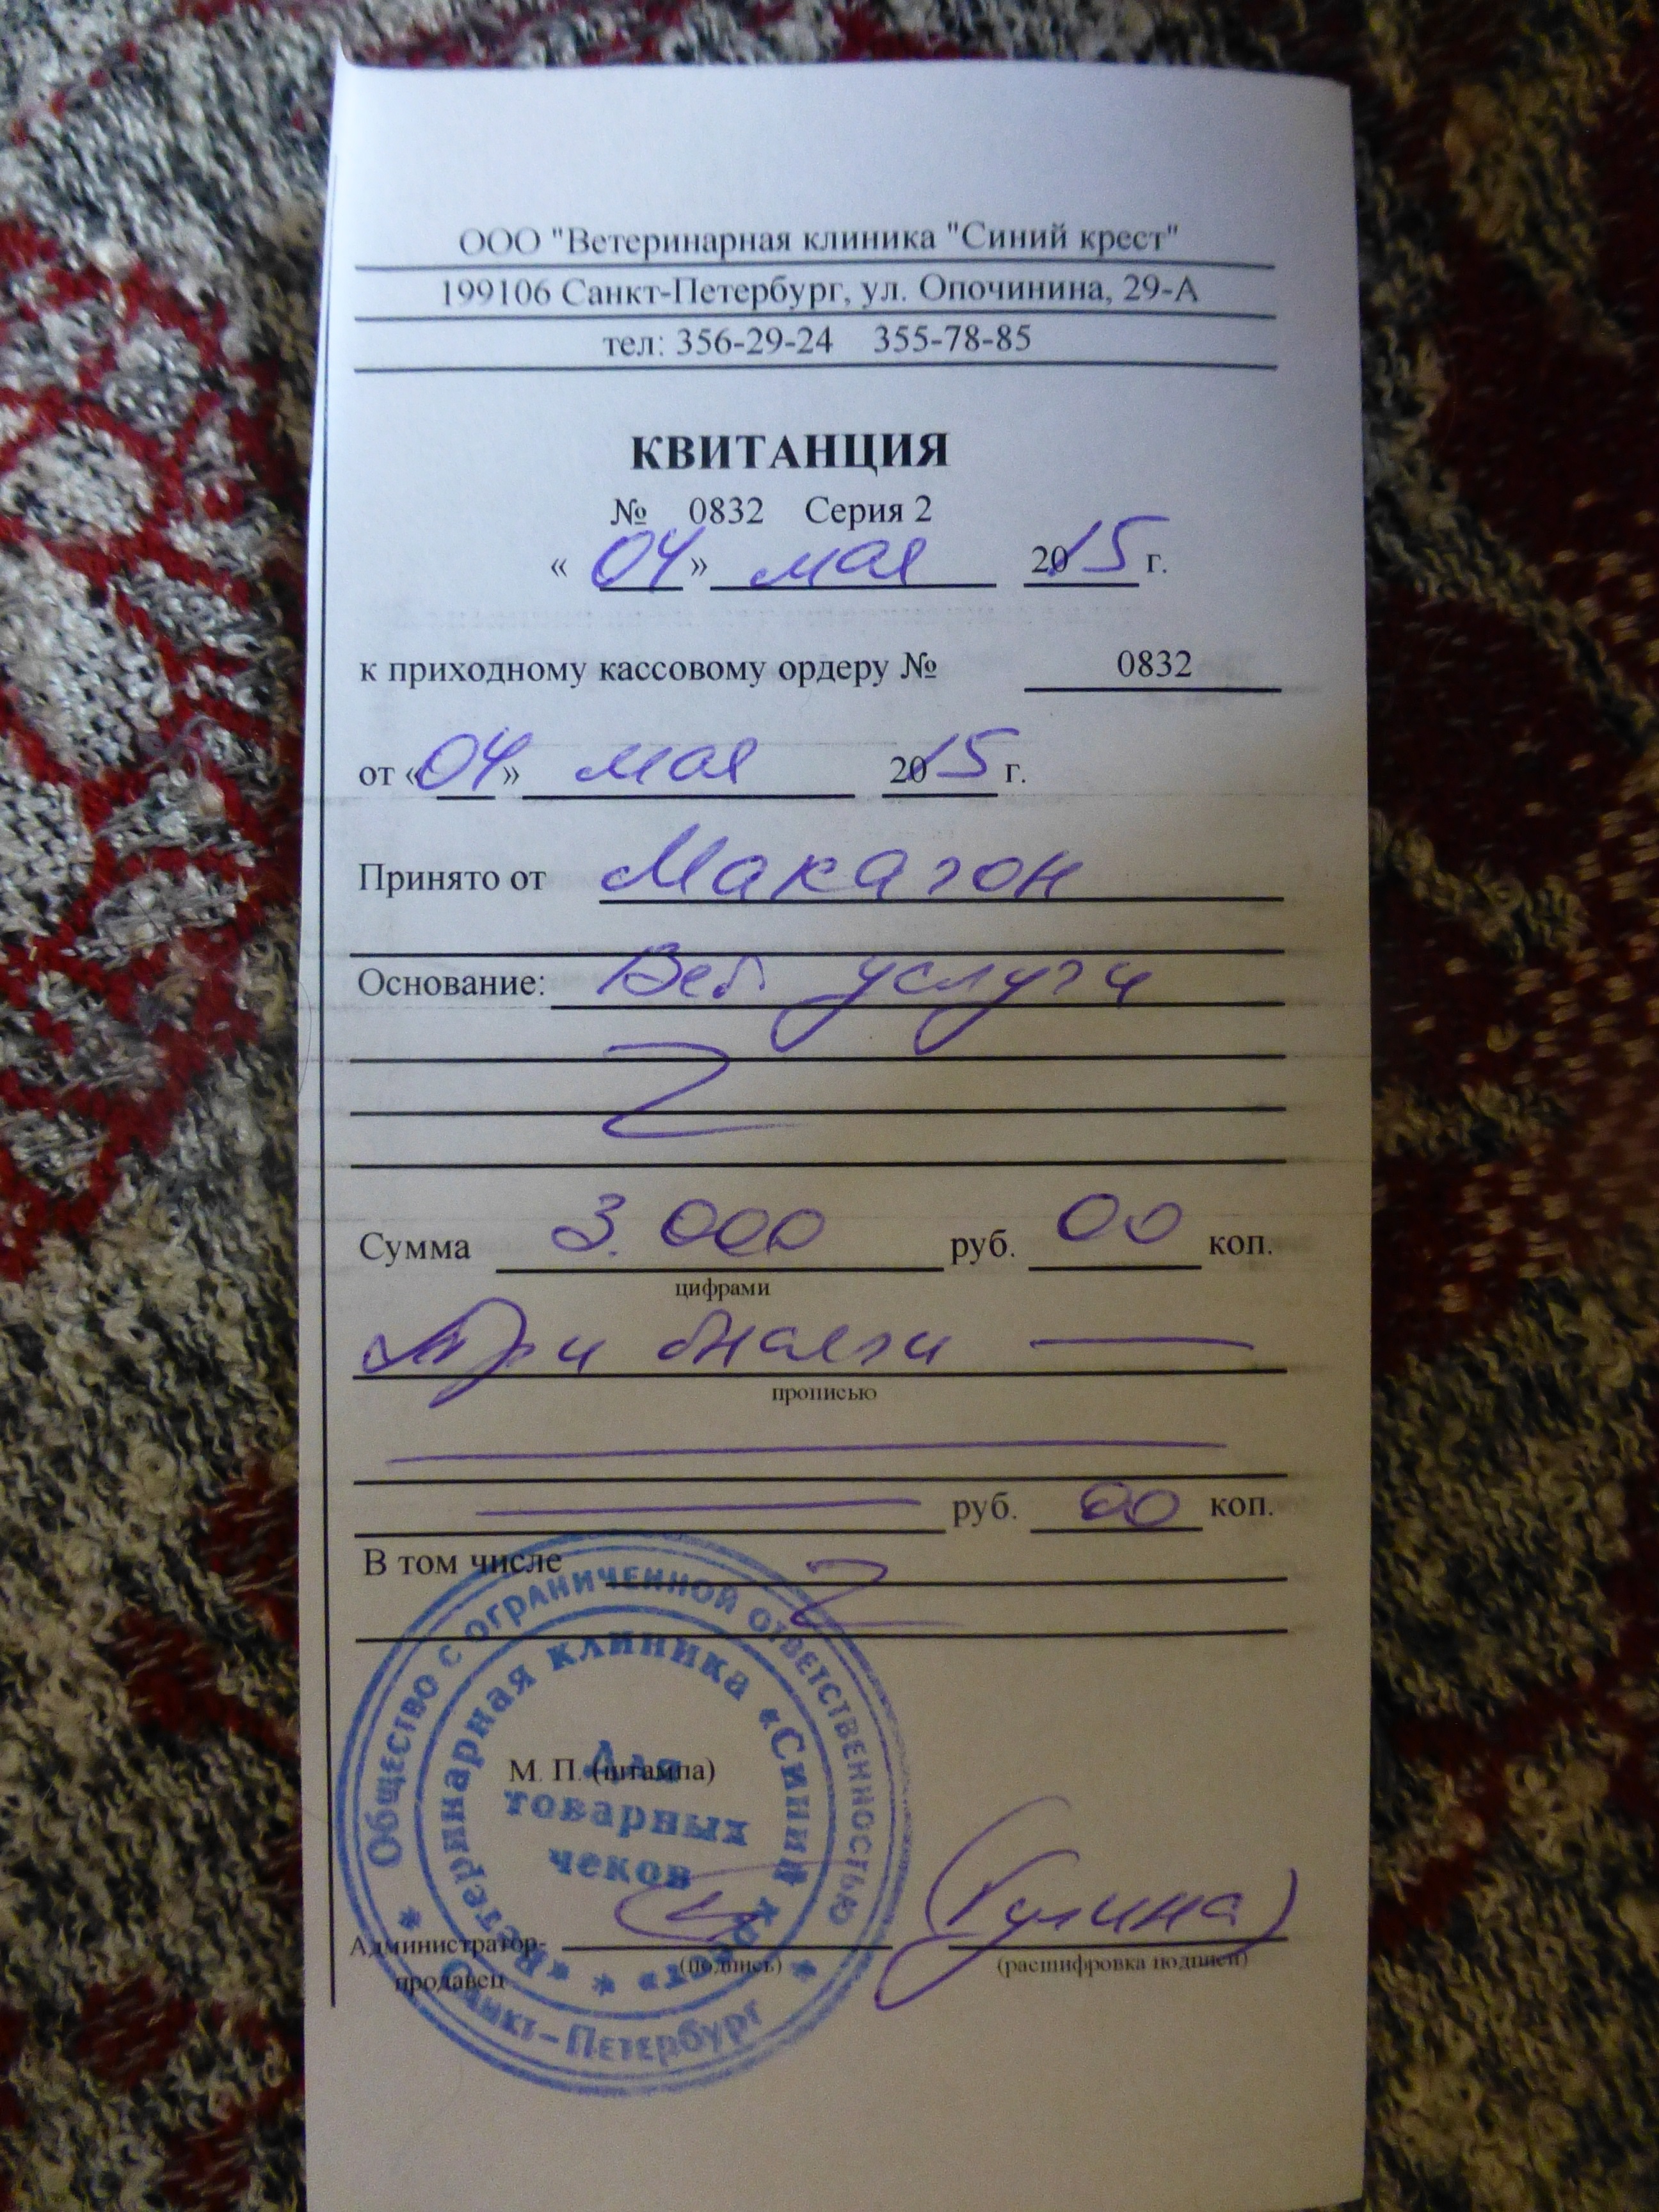 ООО "Ветеринарная клиника "Синий крест"
199106 Санкт-Петербург, ул. Опочинина, 29-А
тел: 356-29-24 355-78-85
КВИТАНЦИЯ
№ 0832 Серия 2
« 04 » мая 2015 г.
к приходному кассовому ордеру № 0832
от « 04 » мая 2015 г.
Принято от Макагон
Основание: Вет. услуги
Сумма 3.000 руб. 00 коп.
цифрами
Три
прописью
руб. 00 коп.
В том числе
Общество с ограниченной ответственностью
Ветеринарная клиника «Синий крест»
М. П. (штампа)
Для
товарных
чеков
Администратор-
продавец
(подпись)
(расшифровка подписи)
Санкт-Петербург